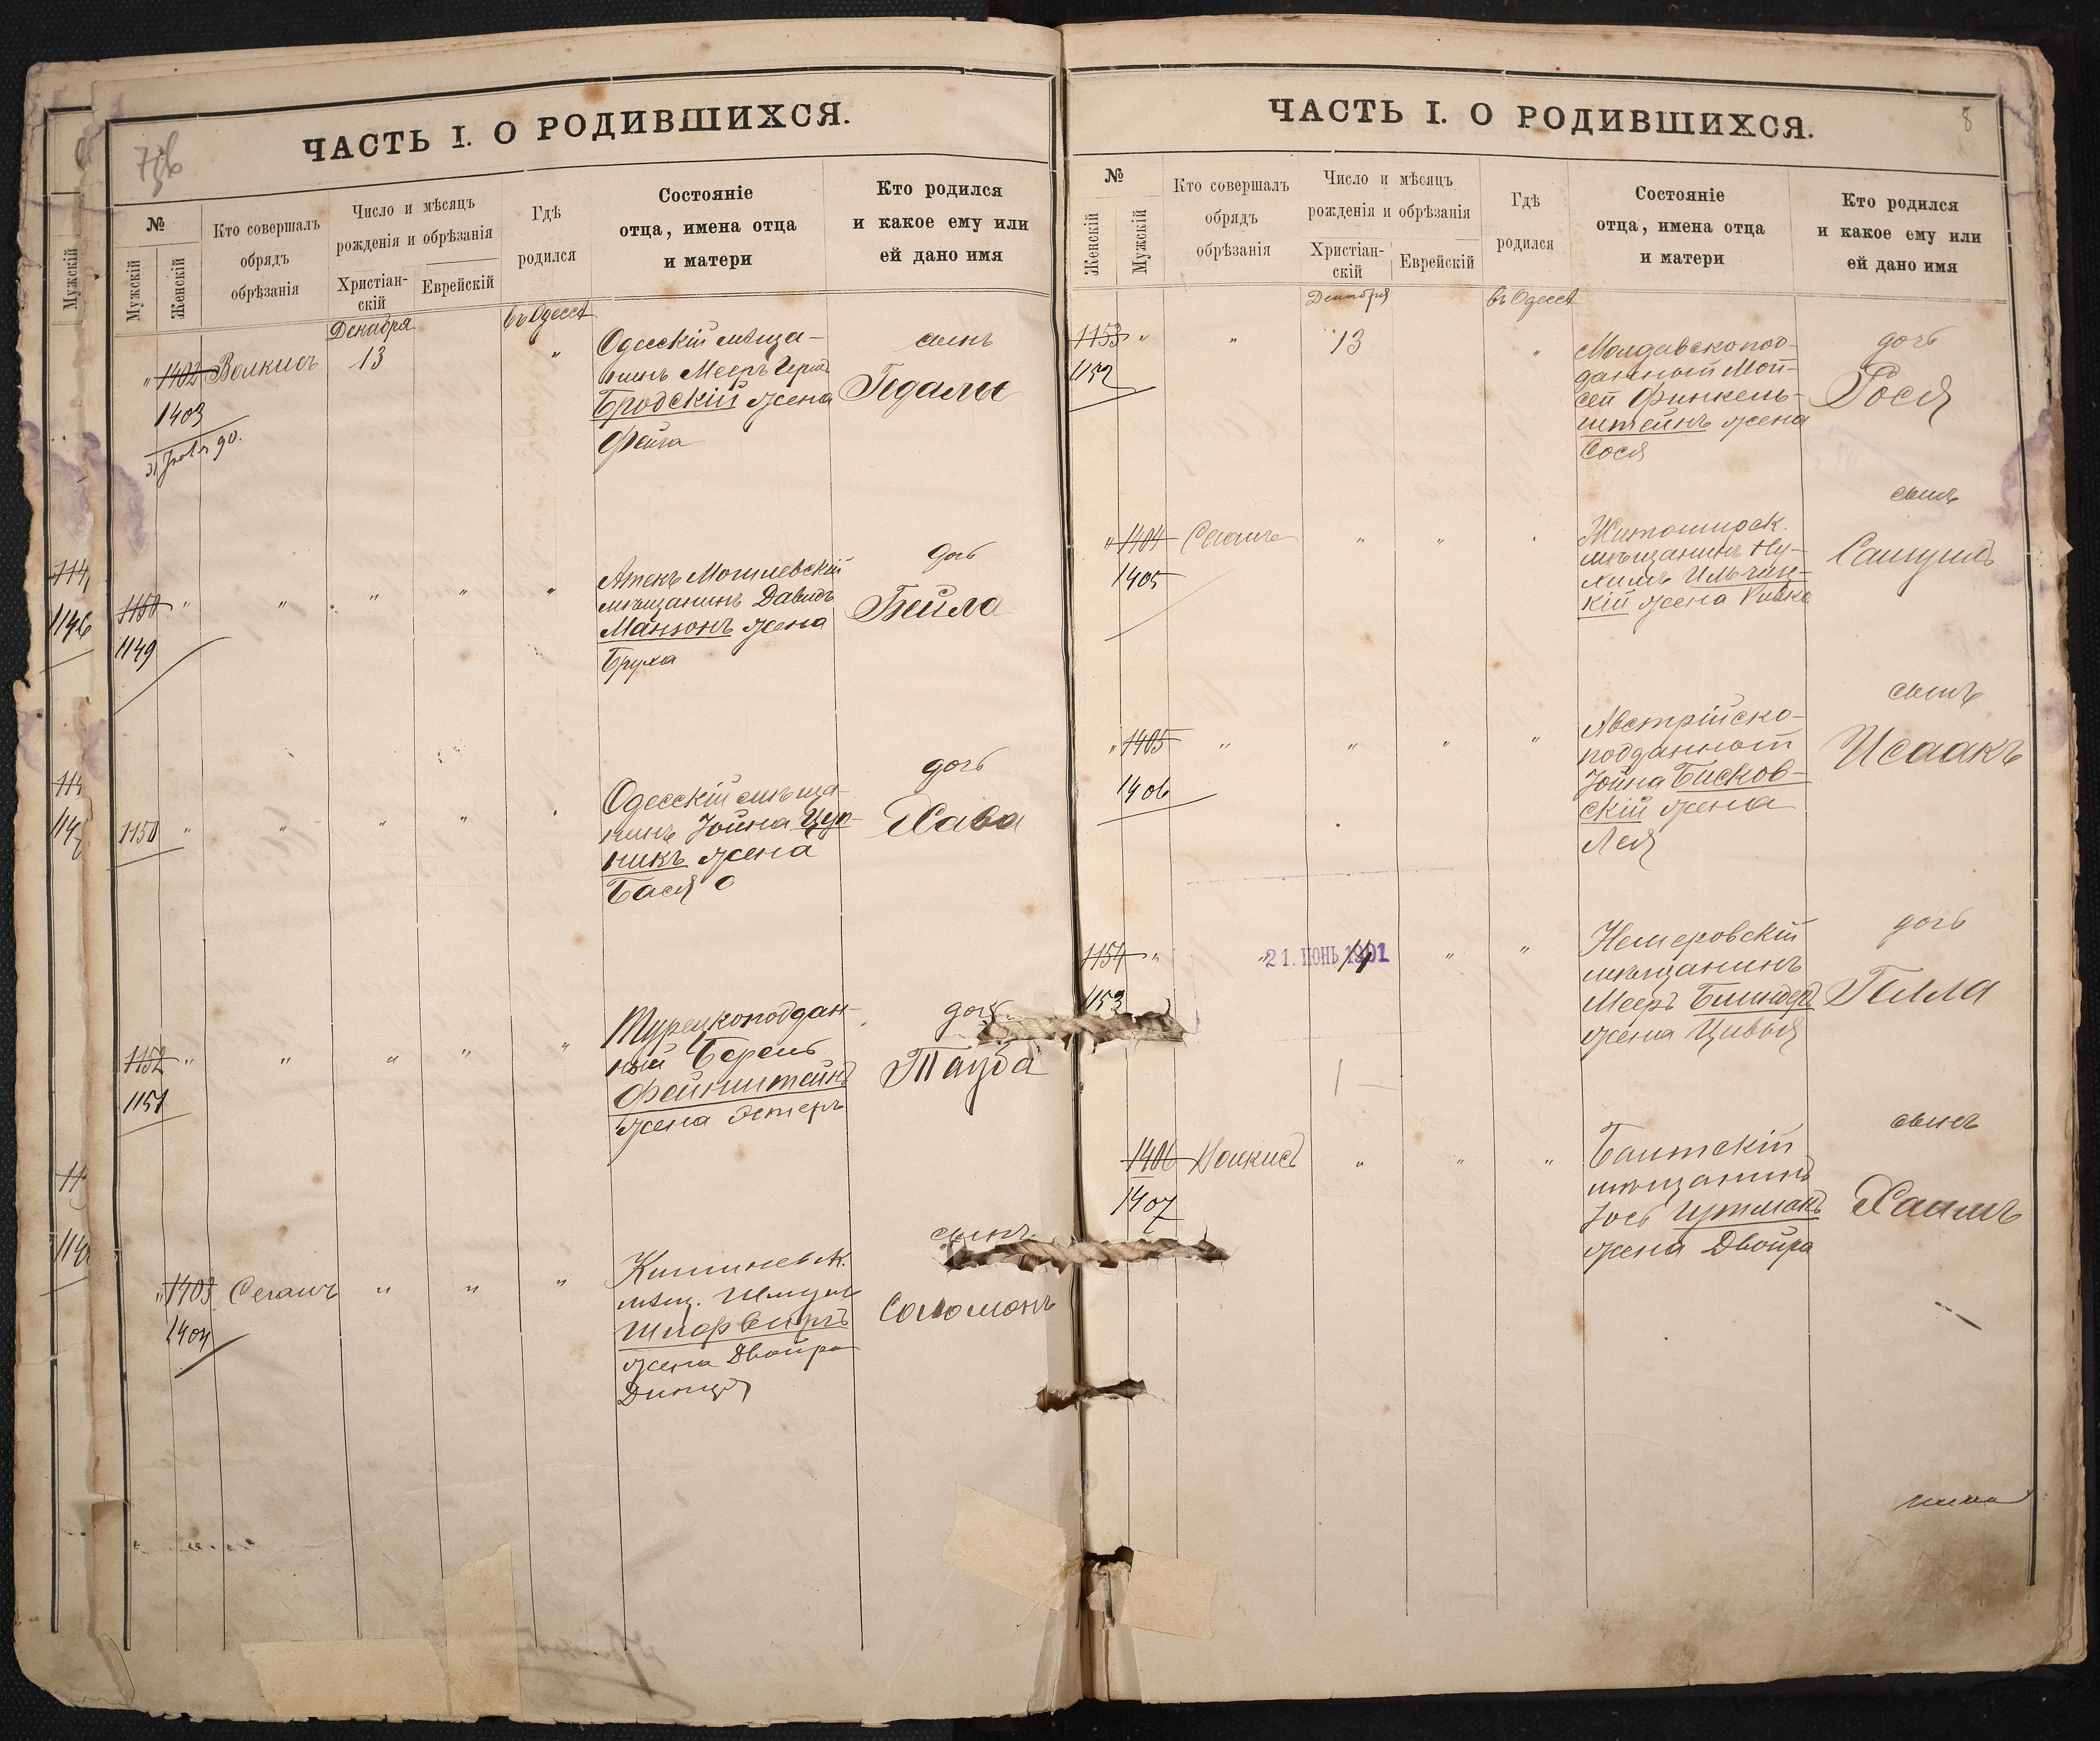 ЧАСТЬ I. О РОДИВШИХСЯ.
№
Мужскій
Женскій
Кто совершалъ
обрядъ
обрѣзанія
Число и мѣсяцъ
рожденія и обрѣзанія
Христіан-
скій
Еврейскій
Гдѣ
родился
Состояніе
отца, имена отца
и матери
Кто родился
и какое ему или
ей дано имя
Декабря
въ Одессѣ
" 1402 Волкисъ 13 "
1403
Одесскій мѣща-
нинъ Мееръ Герш
Бродскій жена
Фейга
сынъ
Гедалье
1150 " " " " "
1149
Могилевскій
мѣщанинъ Давидъ
Манзонъ жена
Бруха
дочь
Бейла
1150 " " " "
Одесскій мѣща-
нинъ Іойна Цуп-
никъ жена
Бася
дочь
Хава
1152 " " " " "
1151
Турецкоподдан-
ный Берель
Фейнштейнъ
жена Эстеръ
дочь
Тауба
" 1403 Сегалъ " " "
1404
Кишиневск.
мѣщ. Шмуль
жена Двойра
сынъ
Соломонъ
ЧАСТЬ I. О РОДИВШИХСЯ.
8
№
Женскій
Мужскій
Кто совершалъ
обрядъ
обрѣзанія
Число и мѣсяцъ
рожденія и обрѣзанія
Христіан-
скій
Еврейскій
Гдѣ
родился
Состояніе
отца, имена отца
и матери
Кто родился
и какое ему или
ей дано имя
Декабря
въ Одессѣ
1153 " " 13 "
1152
Молдавскопод-
данный Мой-
сей Финкель-
штейнъ жена
Сося
дочь
Рося
" 1404 Сегалъ " "
1405
Житомирск.
мѣщанинъ Ну-
химъ Ильчин-
кій жена Ривка
сынъ
Самуилъ
" 1405 " " " "
1406
Австрійско-
подданный
Іойна Бисков-
скій жена
Лея
сынъ
Исаакъ
1154 " " 14 " "
21. ИЮНЬ 1901
1153
Немеровскій
мѣщанинъ
Мееръ
жена Цивья
дочь
1406 Волкисъ " " "
1407
Балтскій
мѣщанинъ
Іось Гутманъ
жена Двойра
сынъ
Хаимъ
Мужскій
1146